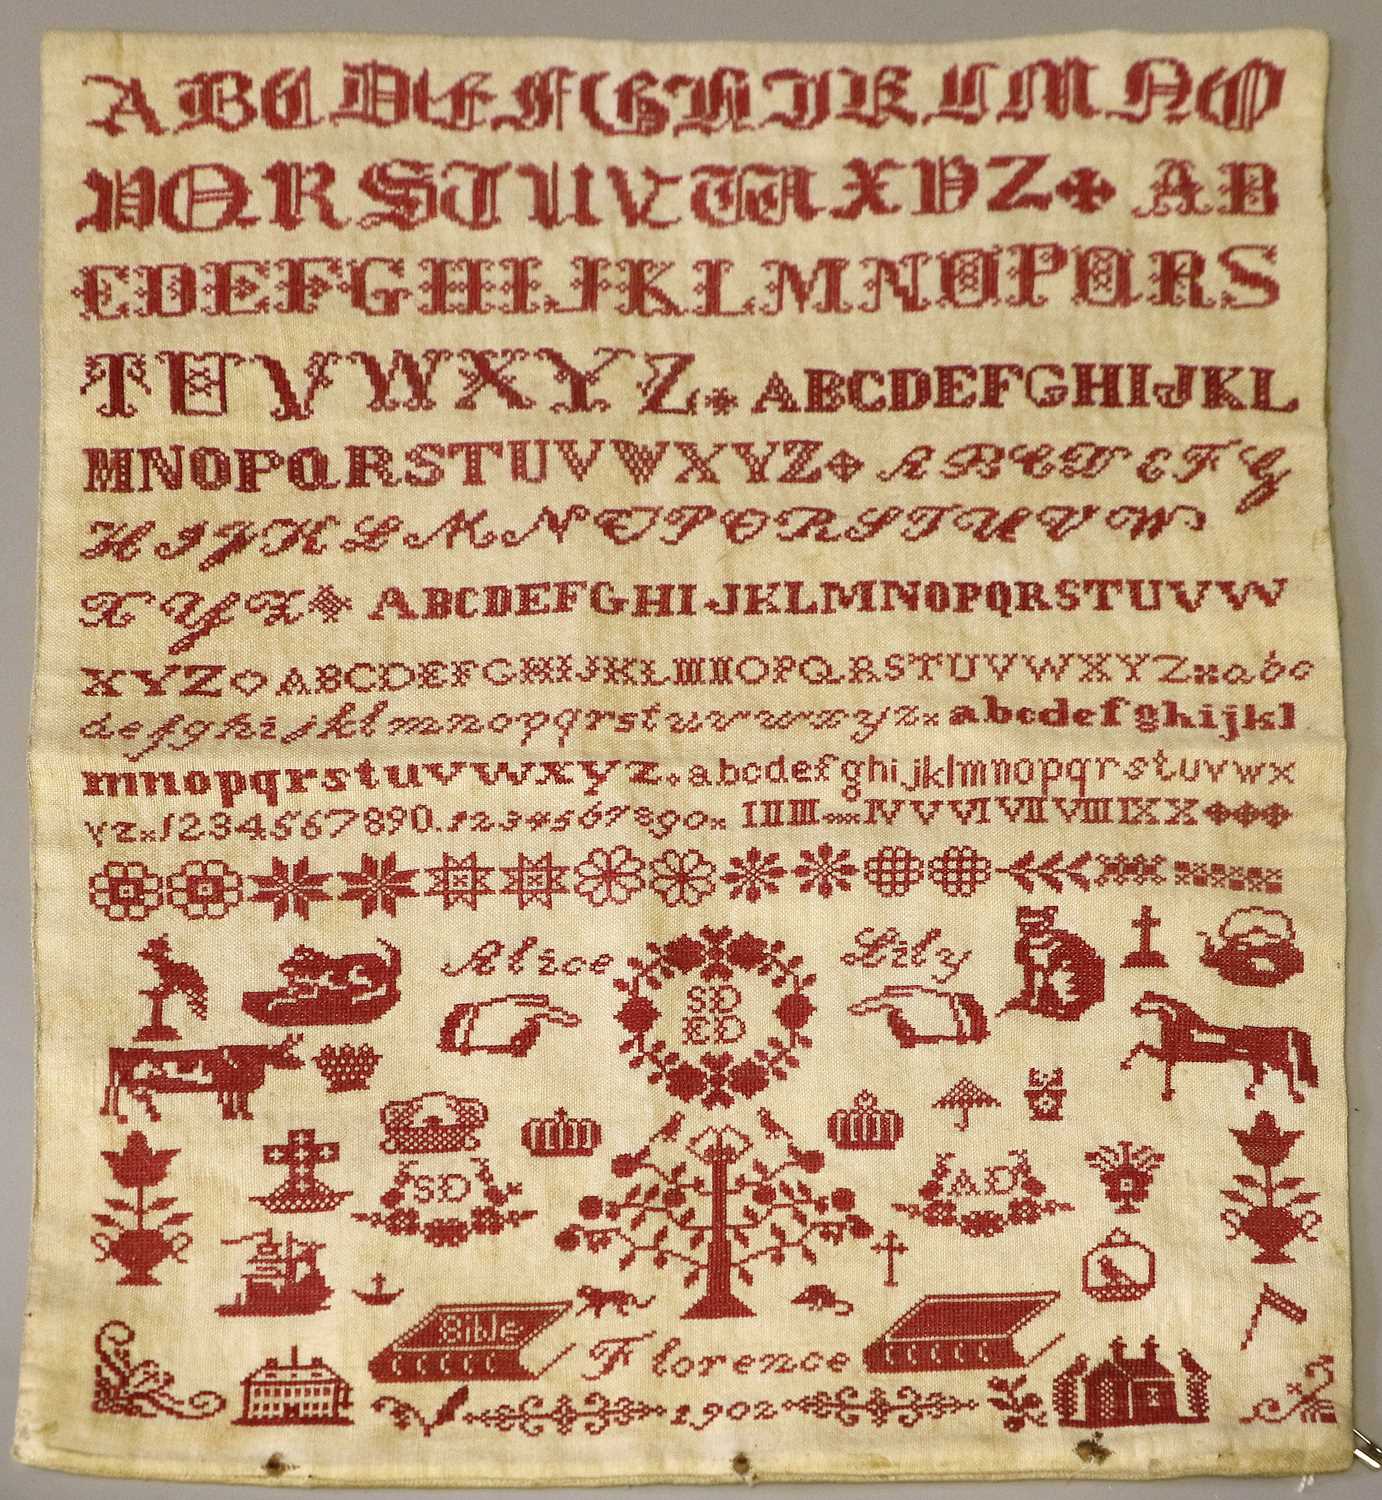 A B C D E F G H I K L M N O
P Q R S T U V W X Y Z A B
C D E F G H I J K L M N O P Q R S
T U V W X Y Z A B C D E F G H I J K L
M N O P Q R S T U V W X Y Z A B C D E F G
H I J K L M N O P Q R S T U V W
X Y Z A B C D E F G H I J K L M N O P Q R S T U V W
X Y Z A B C D E F G H I J K L M N O P Q R S T U V W X Y Z a b c
d e f g h i j k l m n o p q r s t u v w x y z a b c d e f g h i j k l
m n o p q r s t u v w x y z a b c d e f g h i j k l m n o p q r s t u v w x
y z 1 2 3 4 5 6 7 8 9 0 . 1 2 3 4 5 6 7 8 9 0 I II III IV V VI VII VIII IX X
Alice
Lily
SD
ED
SD
AD
Bible
Florence
1902